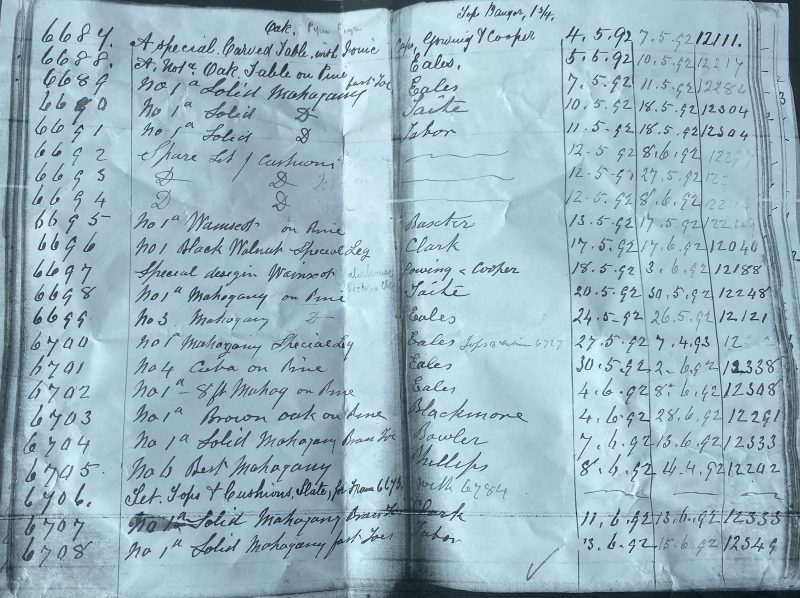 Oak. Tops Bangor, 1 3/4.
6687. A special Carved Table, with Ionic Caps, Gowing & Cooper 4.5.92 7.5.92 12111.
6688. A. No 1a Oak Table on Pine Eales. 5.5.92 10.5.92 12217
6689 No 1a Solid Mahogany fast Toe Eales 7.5.92 11.5.92 12284
6690 No 1a Solid D Taite 10.5.92 18.5.92 12304
6691 No 1a Solid D Tabor 11.5.92 18.5.92 12304
6692 Spare Set of Cushions 12.5.92 8.6.92
6693 D D 12.5.92 27.5.92
6694 D D 12.5.92 8.6.92
6695 No 1a Wainscot on Pine Baxter 13.5.92 17.5.92
6696 No 1 Black Walnut Special Leg Clark 17.5.92 17.6.92 12040
6697 Special design Wainscot Gowing & Cooper 18.5.92 3.6.92 12188
6698 No 1a Mahogany on Pine Taite 20.5.92 30.5.92 12248
6699 No 3 Mahogany D Eales 24.5.92 26.5.92 12121
6700 No 1a Mahogany Special Leg Eales 6727 27.5.92 7.4.93
6701 No 4 Cuba on Pine Eales 30.5.92 2.6.92 12338
6702 No 1a - 8ft Mahog on Pine Eales 4.6.92 8.6.92 12308
6703 No 1a Brown Oak on Pine Blackmore 4.6.92 28.6.92 12291
6704 No 1a Solid Mahogany Brass Toe Bowler 7.6.92 13.6.92 12333
6705. No 6 Best Mahogany Phillips 8.6.92 12202
6706. Set Tops & Cushions, Slate, for Frame 6673. with 6784
6707 No 1a Solid Mahogany Brass Toe Clark 11.6.92 13.6.92 12333
6708 No 1a Solid Mahogany fast Toe Tabor 13.6.92 15.6.92 12349